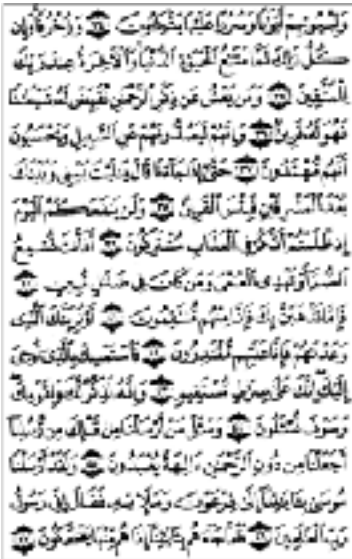 وَلِبُيُوتِهِمْ أَبْوَابًا وَسُرُرًا عَلَيْهَا يَتَّكِئُونَ ۝ وَزُخْرُفًا وَإِن
كُلُّ ذَٰلِكَ لَمَّا مَتَاعُ الْحَيَاةِ الدُّنْيَا وَالْآخِرَةُ عِندَ رَبِّكَ
لِلْمُتَّقِينَ ۝ وَمَن يَعْشُ عَن ذِكْرِ الرَّحْمَٰنِ نُقَيِّضْ لَهُ شَيْطَانًا
فَهُوَ لَهُ قَرِينٌ ۝ وَإِنَّهُمْ لَيَصُدُّونَهُمْ عَنِ السَّبِيلِ وَيَحْسَبُونَ
أَنَّهُم مُّهْتَدُونَ ۝ حَتَّىٰ إِذَا جَاءَنَا قَالَ يَا لَيْتَ بَيْنِي وَبَيْنَكَ
بُعْدَ الْمَشْرِقَيْنِ فَبِئْسَ الْقَرِينُ ۝ وَلَن يَنفَعَكُمُ الْيَوْمَ
إِذ ظَّلَمْتُمْ أَنَّكُمْ فِي الْعَذَابِ مُشْتَرِكُونَ ۝ أَفَأَنتَ تُسْمِعُ
الصُّمَّ أَوْ تَهْدِي الْعُمْيَ وَمَن كَانَ فِي ضَلَالٍ مُّبِينٍ ۝
فَإِمَّا نَذْهَبَنَّ بِكَ فَإِنَّا مِنْهُم مُّنتَقِمُونَ ۝ أَوْ نُرِيَنَّكَ الَّذِي
وَعَدْنَاهُمْ فَإِنَّا عَلَيْهِم مُّقْتَدِرُونَ ۝ فَاسْتَمْسِكْ بِالَّذِي أُوحِيَ
إِلَيْكَ إِنَّكَ عَلَىٰ صِرَاطٍ مُّسْتَقِيمٍ ۝ وَإِنَّهُ لَذِكْرٌ لَّكَ وَلِقَوْمِكَ
وَسَوْفَ تُسْأَلُونَ ۝ وَاسْأَلْ مَنْ أَرْسَلْنَا مِن قَبْلِكَ مِن رُّسُلِنَا
أَجَعَلْنَا مِن دُونِ الرَّحْمَٰنِ آلِهَةً يُعْبَدُونَ ۝ وَلَقَدْ أَرْسَلْنَا
مُوسَىٰ بِآيَاتِنَا إِلَىٰ فِرْعَوْنَ وَمَلَئِهِ فَقَالَ إِنِّي رَسُولُ
رَبِّ الْعَالَمِينَ ۝ فَلَمَّا جَاءَهُم بِآيَاتِنَا إِذَا هُم مِّنْهَا يَضْحَكُونَ ۝